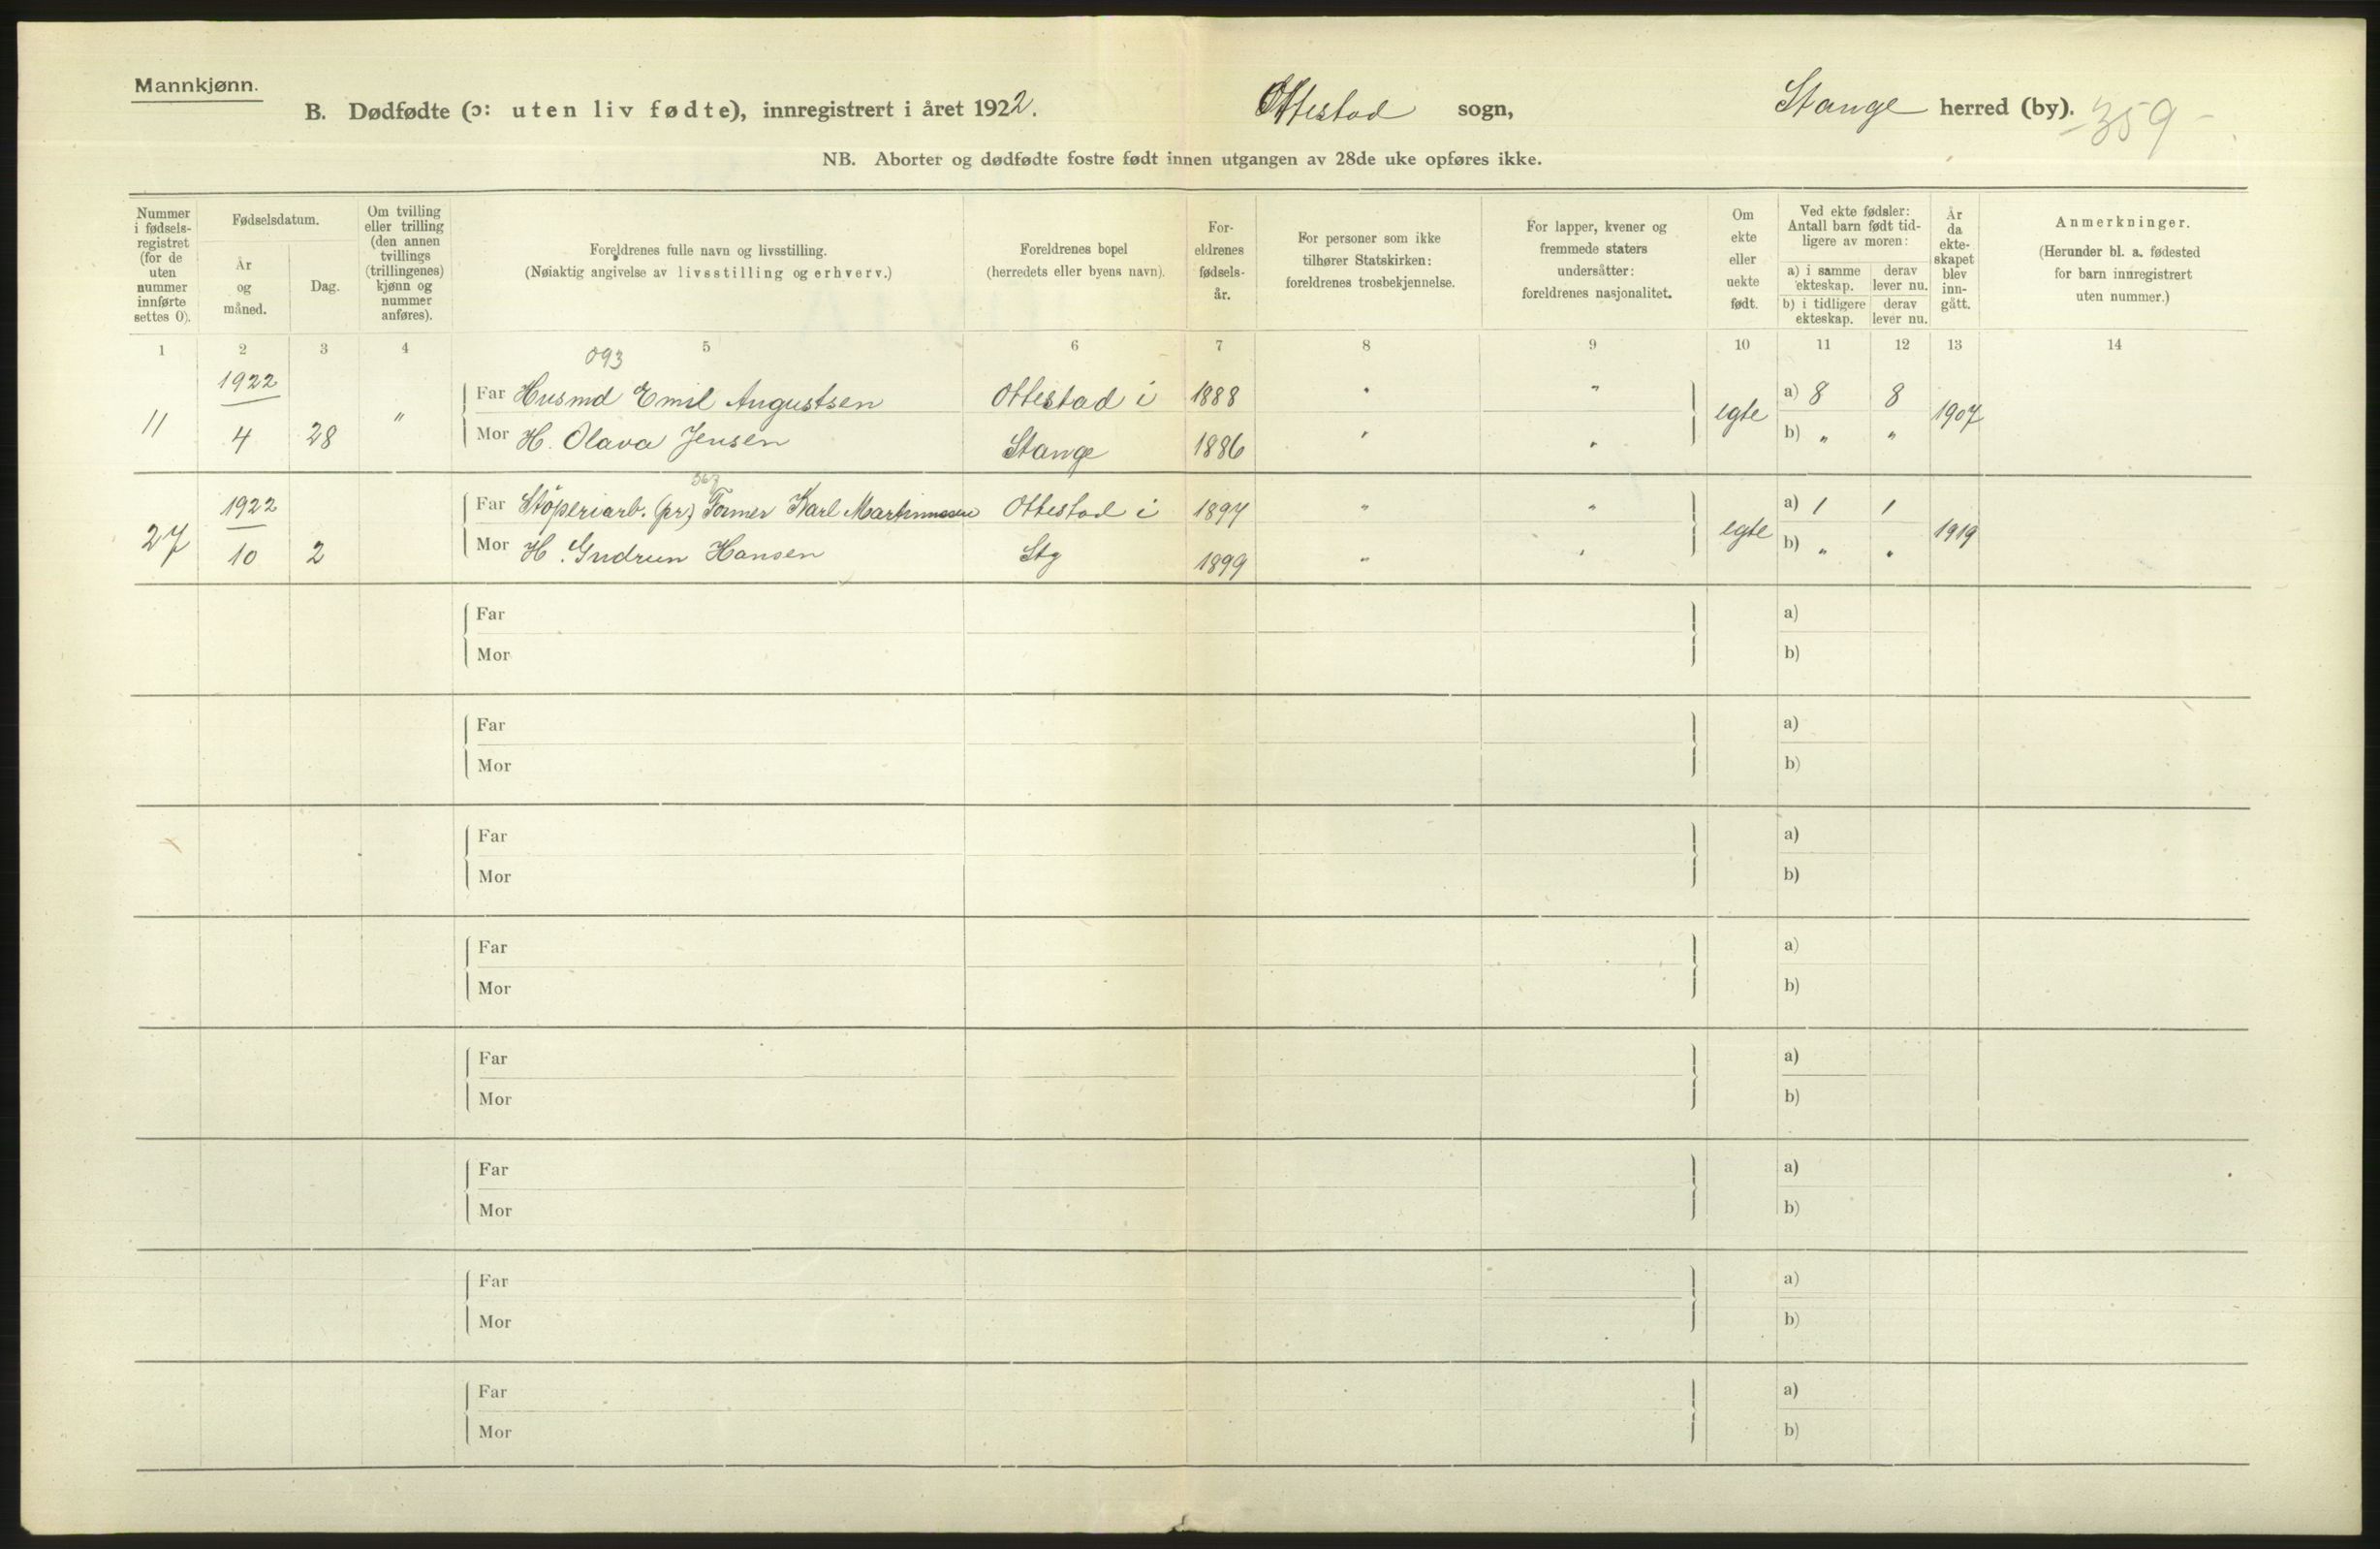 Mannkjønn.
B. Dødfødte (ɔ: uten liv fødte), innregistrert i året 1922. Ottestad sogn, Stange herred (by). -359-
NB. Aborter og dødfødte fostre født innen utgangen av 28de uke opføres ikke.
Nummer i fødsels-registret (for de uten nummer innførte settes 0).
Fødselsdatum.
År og måned.
Dag.
Om tvilling eller trilling (den annen tvillings (trillingenes) kjønn og nummer anføres).
Foreldrenes fulle navn og livsstilling.
(Nøiaktig angivelse av livsstilling og erhverv.)
Foreldrenes bopel
(herredets eller byens navn).
For-eldrenes fødsels-år.
For personer som ikke tilhører Statskirken: foreldrenes trosbekjennelse.
For lapper, kvener og fremmede staters undersåtter: foreldrenes nasjonalitet.
Om ekte eller uekte født.
Ved ekte fødsler: Antall barn født tid-ligere av moren:
a) i samme ekteskap. derav lever nu.
b) i tidligere ekteskap. derav lever nu.
År da ekte-skapet blev inn-gått.
Anmerkninger.
(Herunder bl. a. fødested for barn innregistrert uten nummer.)
1 2 3 4 5 6 7 8 9 10 11 12 13 14
093
11 1922 4 28 "
Far Husmd Emil Augustsen Ottestad i 1888 " " egte a) 8 8 1907
Mor H. Olava Jensen Stange 1886 " " b) " "
27 1922 10 2
Far Støperiarb. (pr) Former Karl Martinussen Ottestad i 1897 " " egte a) 1 1 1919
Mor H. Gudrun Hansen Stg 1899 " " b) " "
Far a)
Mor b)
Far a)
Mor b)
Far a)
Mor b)
Far a)
Mor b)
Far a)
Mor b)
Far a)
Mor b)
Far a)
Mor b)
Far a)
Mor b)